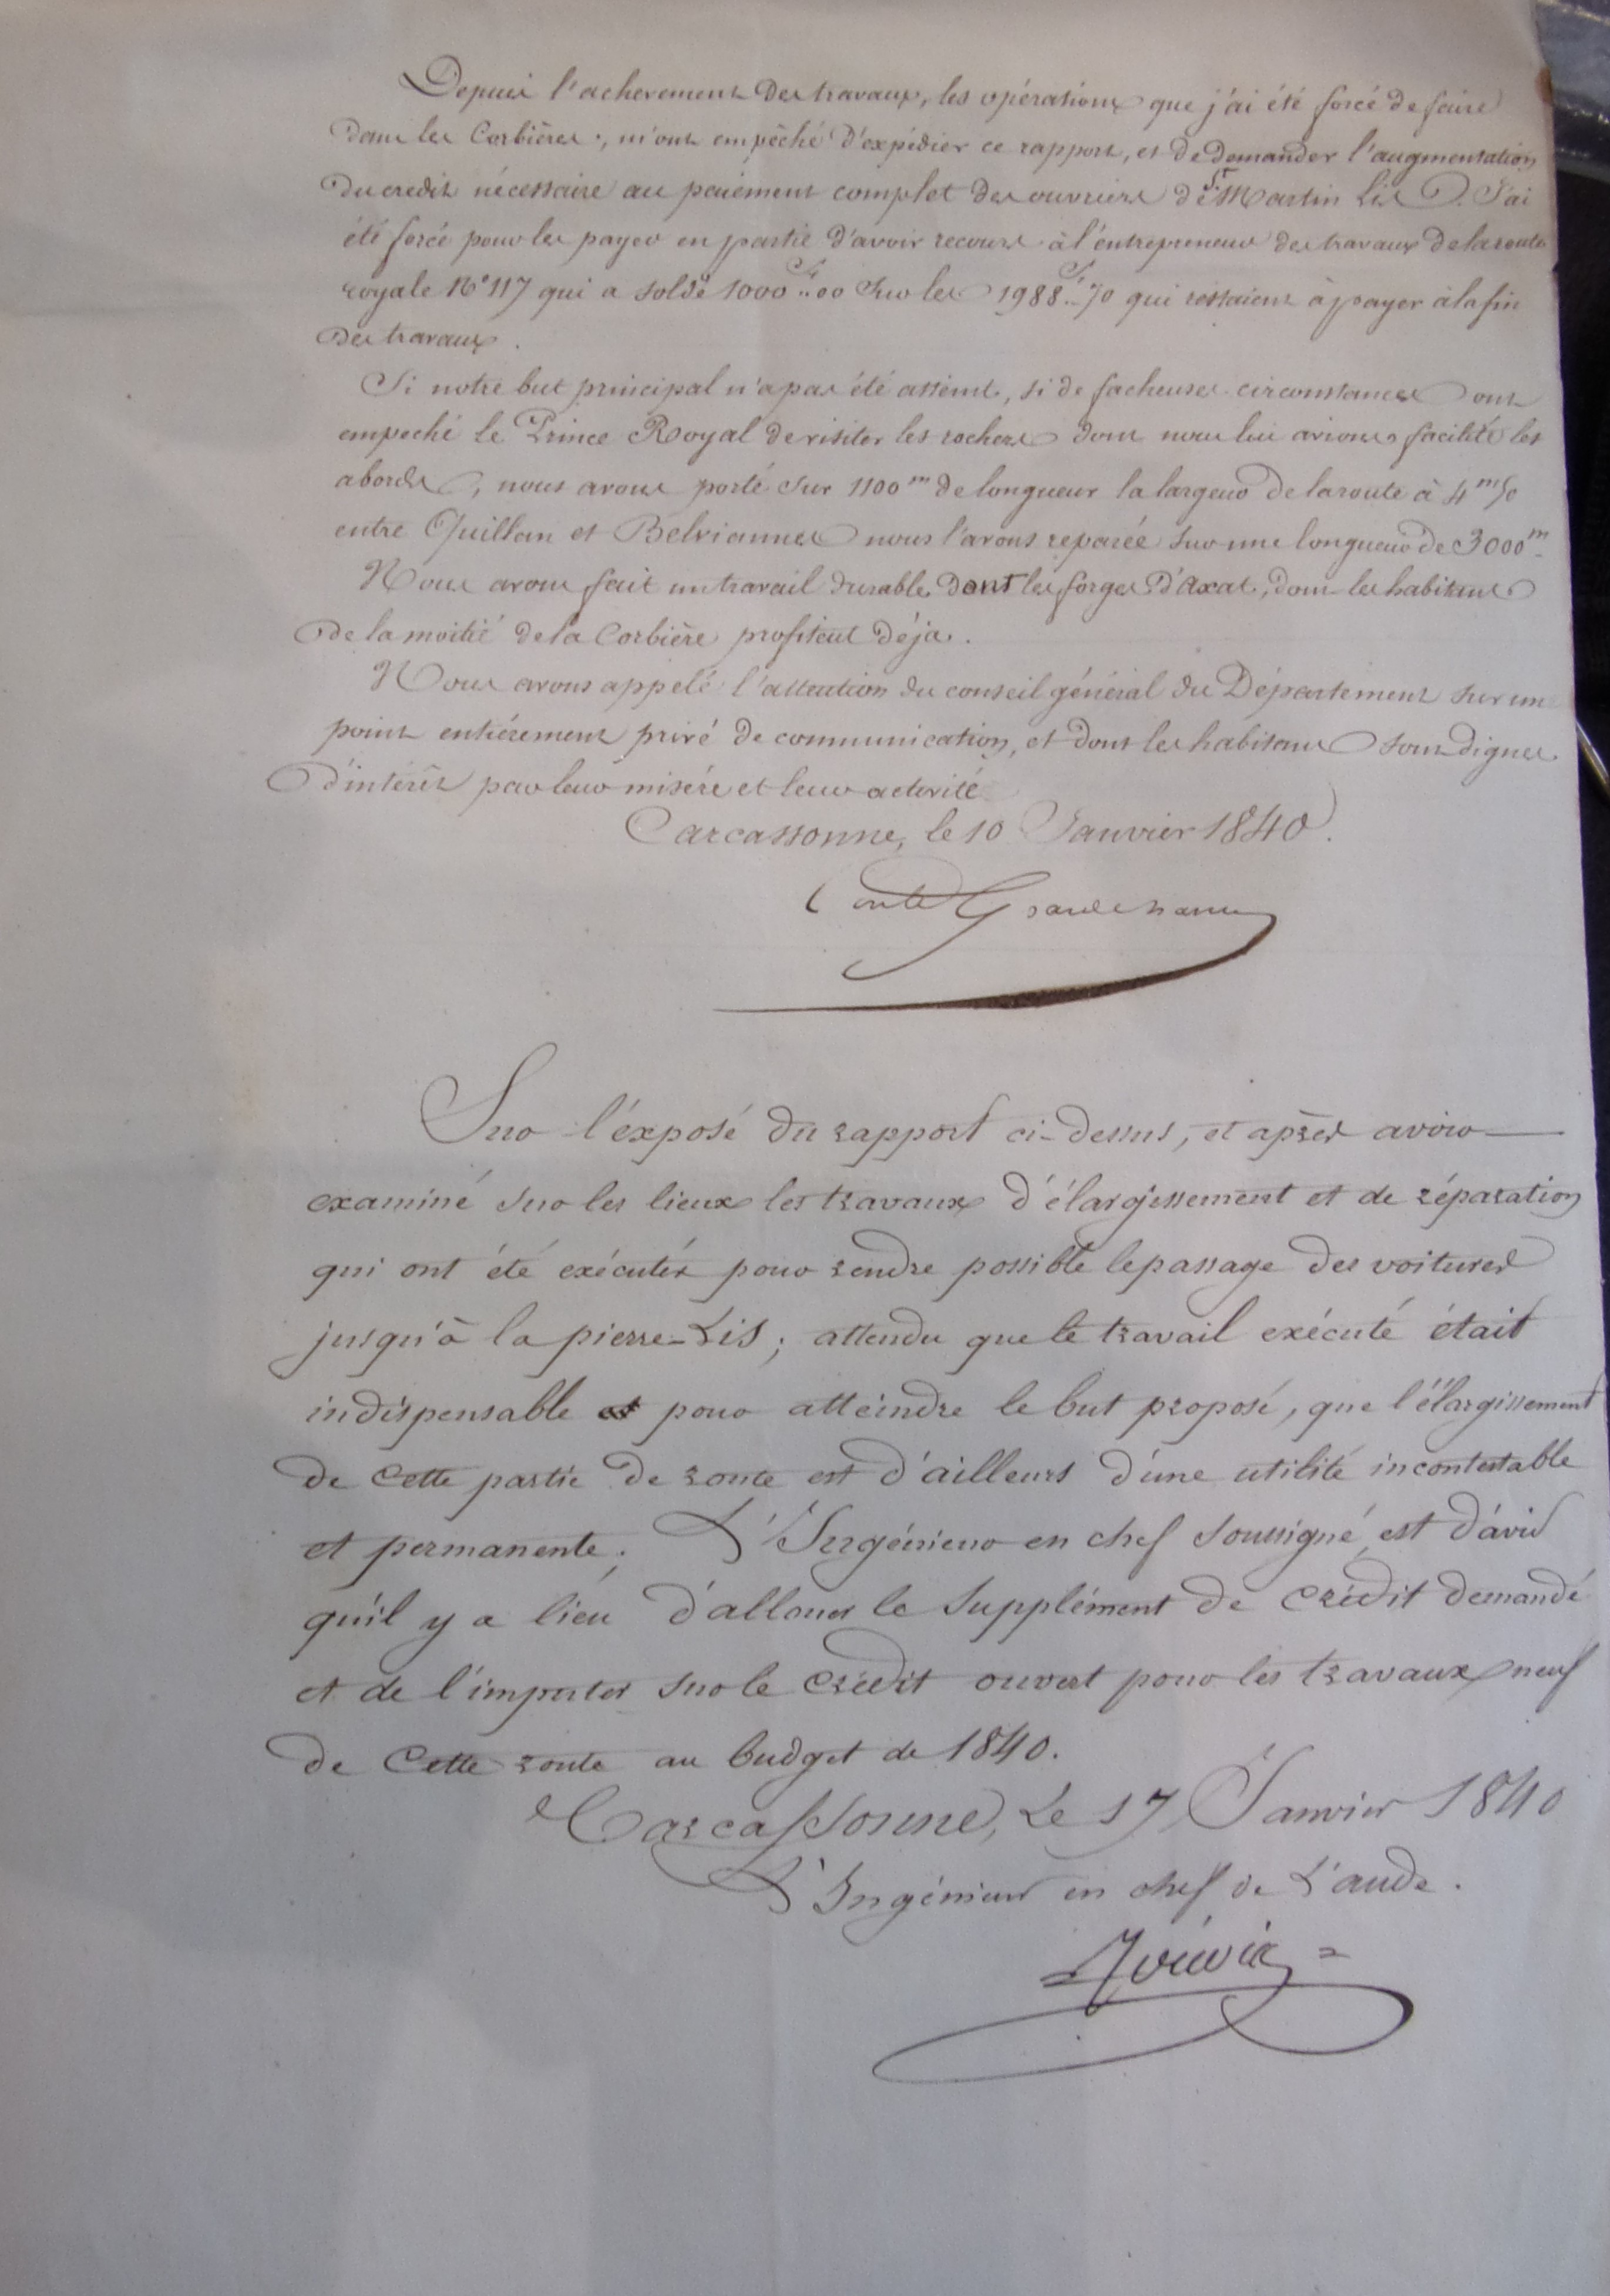 Depuis l'achevement des travaux, les opérations que j'ai été forcé de faire
dans les Corbières, m'ont empêché d'expédier ce rapport, et de demander l'augmentation
du credit nécessaire au paiement complet des ouvriers de St Martin Lis. J'ai
été forcé pour les payer en partie d'avoir recours à l'entrepreneur des travaux de la route
royale N° 117 qui a soldé 1000 fr..00 sur les 1988 fr..70 qui restaient à payer à la fin
des travaux.
Si notre but principal n'a pas été atteint, si de facheuses circonstances ont
empeché le Prince Royal de visiter les rochers dont nous lui avions facilité les
abords, nous avons porté sur 1100m de longueur la largeur de la route à 4m50
entre Quillan et Belviannes nous l'avons reparée sur une longueur de 3000m
Nous avons fait un travail durable dont les forges d'Axat, dont les habitans
de la moitié de la Corbière profitent déja.
Nous avons appelé l'attention du conseil général du Département sur un
point entiérement privé de communication, et dont les habitans sont dignes
d'intérêt par leur misére et leur activité
Carcassonne, le 10 Janvier 1840.
Sur l'éxposé du rapport ci-dessus, et après avoir
examiné sur les lieux les travaux d'élargissement et de réparation
qui ont été exécutés pour rendre possible le passage des voitures
jusqu'à la pierre-Lis; attendu que le travail exécuté était
indispensable pour atteindre le but proposé, que l'élargissement
de cette partie de route est d'ailleurs d'une utilité incontestable
et permanente; L'Ingénieur en chef soussigné, est d'avis
qu'il y a lieu d'allouer le supplément de crédit demandé
et de l'imputer sur le crédit ouvert pour les travaux neufs
de cette route au budget de 1840.
Carcassonne, Le 17 Janvier 1840
L'Ingénieur en chef de L'aude.